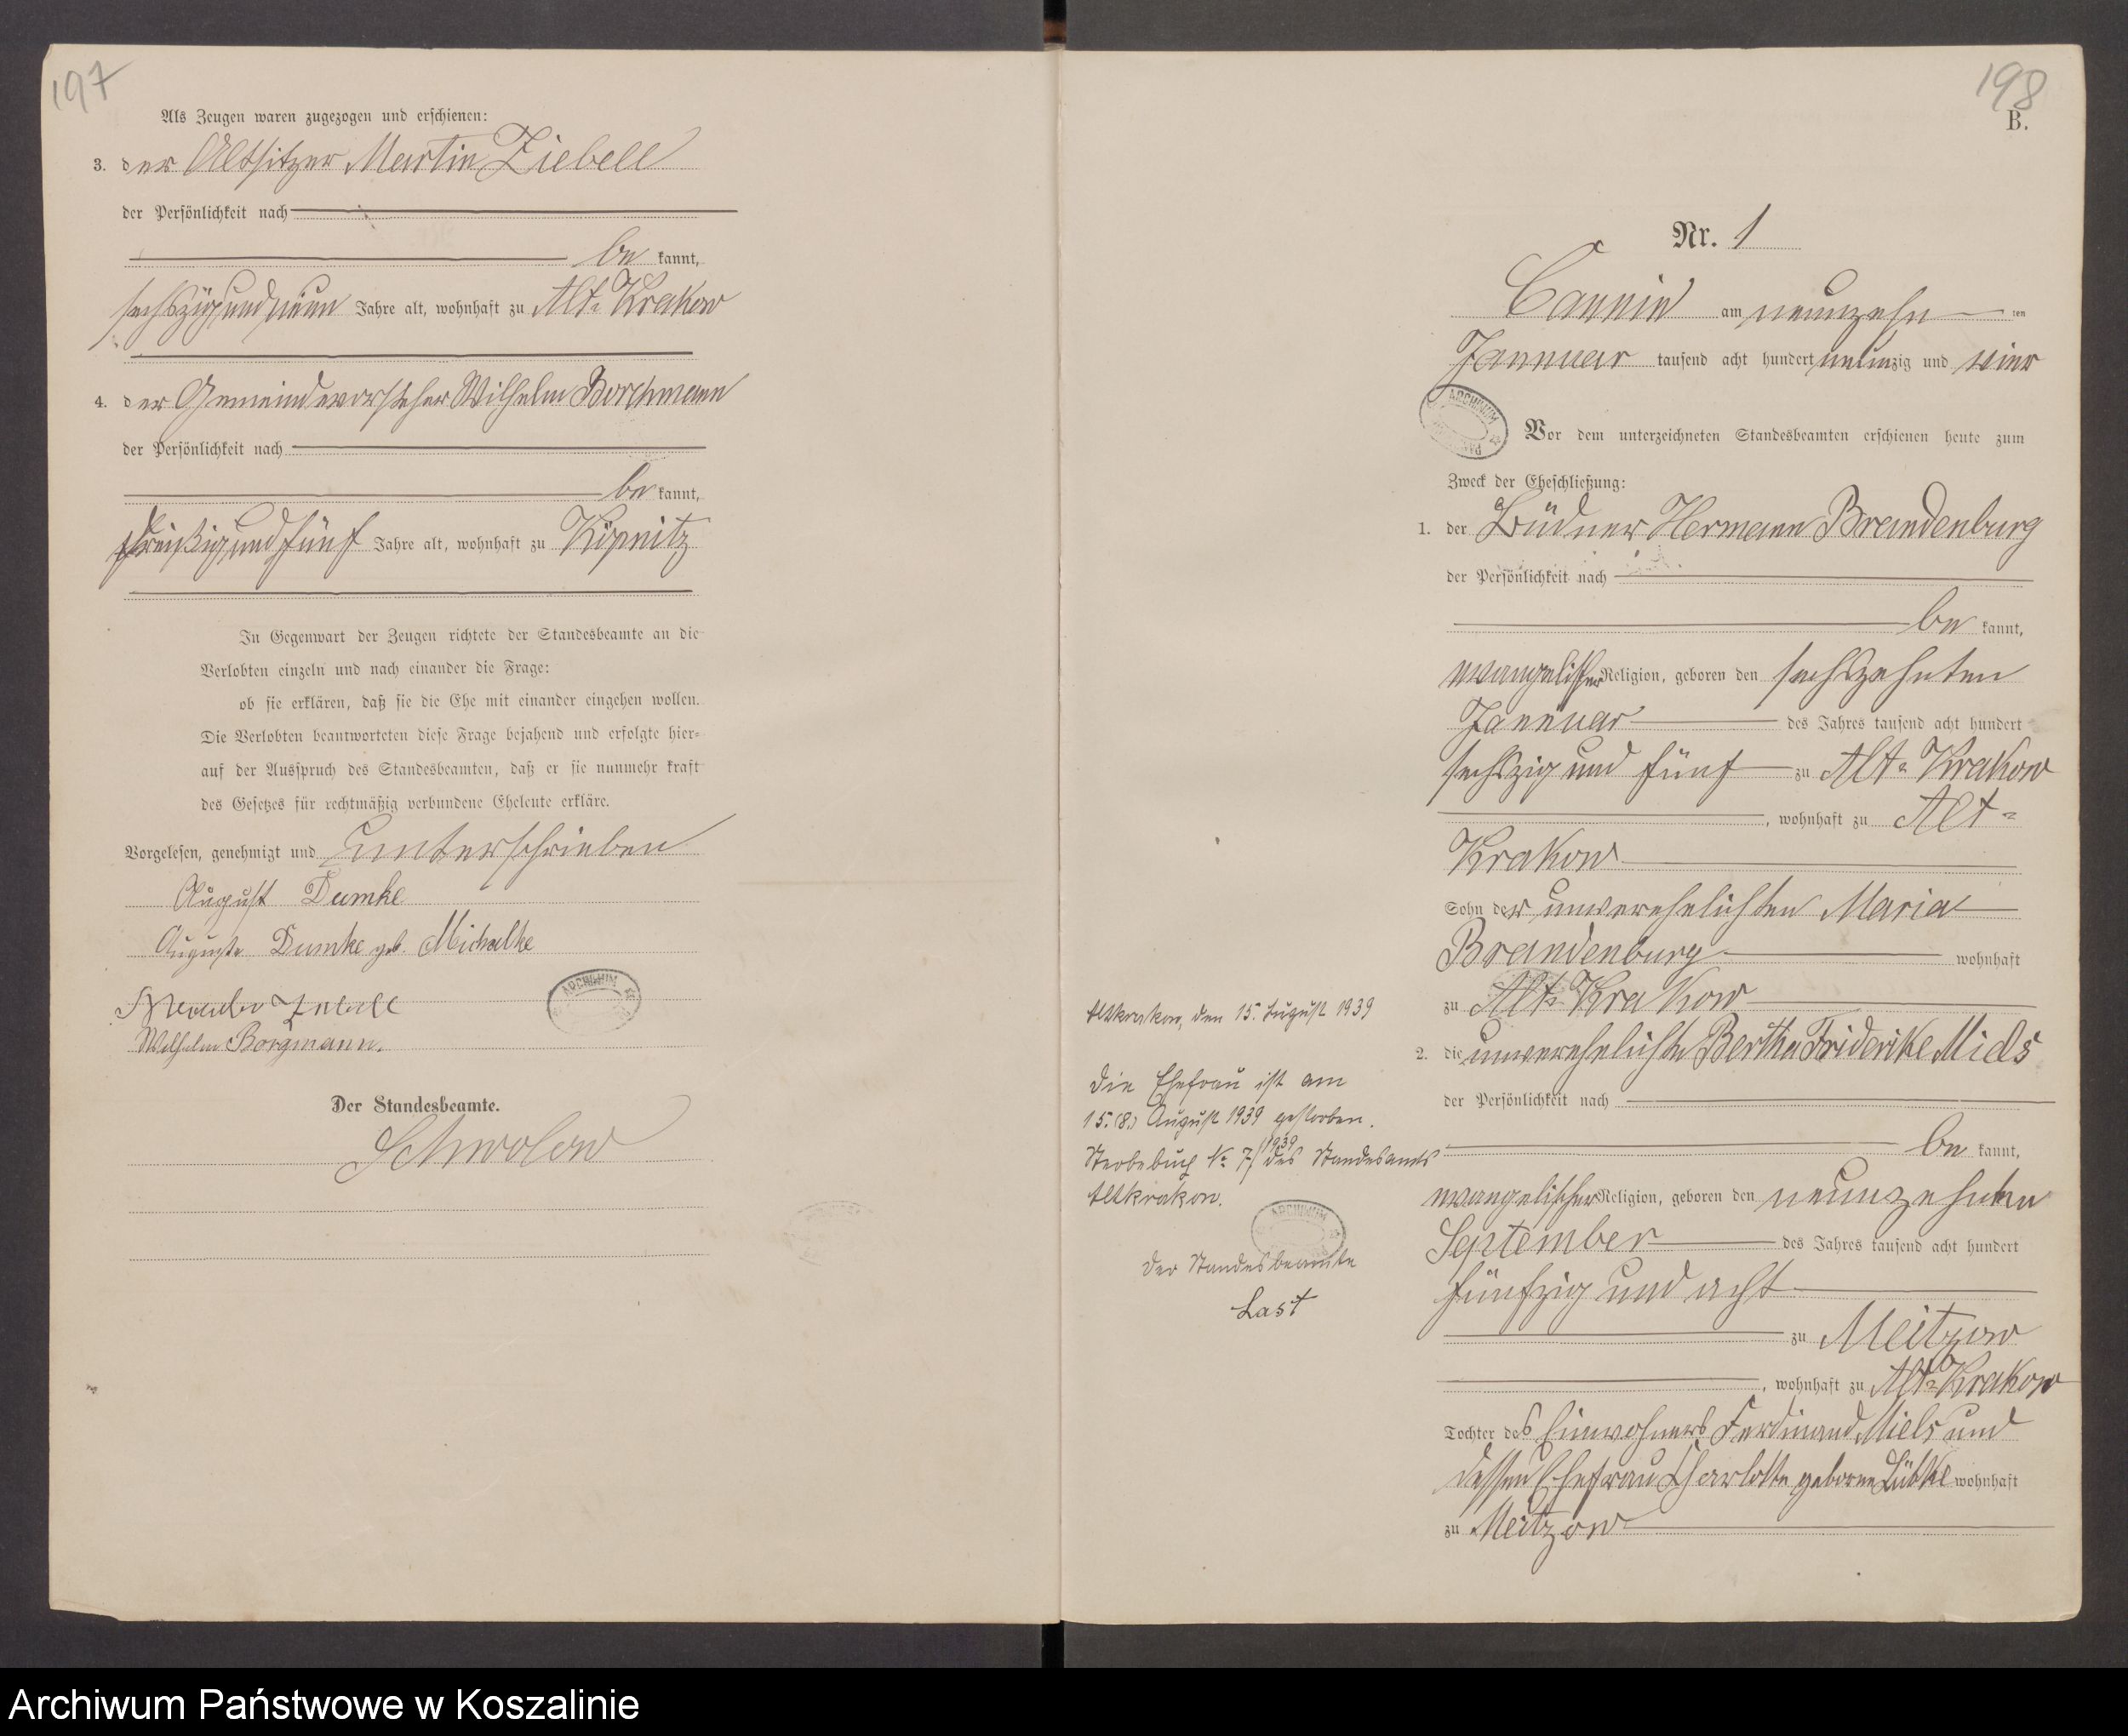 197
Als Zeugen waren zugezogen und erschienen:
3. der Altsitzer Martin Ziebell
der Persönlichkeit nach
be kannt,
sechszig und neun Jahre alt, wohnhaft zu Alt-Krakow
4. der Gemeindevorsteher Wilhelm Borchmann
der Persönlichkeit nach
be kannt,
dreißig und fünf Jahre alt, wohnhaft zu Köpnitz
In Gegenwart der Zeugen richtete der Standesbeamte an die
Verlobten einzeln und nach einander die Frage:
ob sie erklären, daß sie die Ehe mit einander eingehen wollen.
Die Verlobten beantworteten diese Frage bejahend und erfolgte hier-
auf der Ausspruch des Standesbeamten, daß er sie nunmehr kraft
des Gesetzes für rechtmäßig verbundene Eheleute erkläre.
Vorgelesen, genehmigt und unterschrieben
August Dumke
Auguste Dumke geb. Michalke
Wilhelm Borgmann.
ARCHIWUM
Der Standesbeamte.
Schwolow
198
B.
Nr. 1
Cannin am neunzehn ten
Januar tausend acht hundert neunzig und vier
ARCHIWUM
Vor dem unterzeichneten Standesbeamten erschienen heute zum
Zweck der Eheschließung:
1. der Büdner Hermann Brandenburg
der Persönlichkeit nach
be kannt,
evangelischer Religion, geboren den sechszehnten
Januar des Jahres tausend acht hundert
sechszig und fünf zu Alt-Krakow
, wohnhaft zu Alt-
Krakow
Sohn der unverehelichten Maria
Brandenburg wohnhaft
zu Alt-Krakow
2. die unverehelichte Bertha Friderike Miels
der Persönlichkeit nach
be kannt,
evangelischer Religion, geboren den neunzehnten
September des Jahres tausend acht hundert
fünfzig und acht
zu Meitzow
, wohnhaft zu Alt-Krakow
Tochter des Einwohners Ferdinand Miels und
dessen Ehefrau Charlotte geborne Lübke wohnhaft
zu Meitzow
Altkrakow, den 15. August 1939
Die Ehefrau ist am
15. (8.) August 1939 gestorben.
Sterbebuch Nr. 7/1939 des Standesamts
Altkrakow.
ARCHIWUM
Der Standesbeamte
Last
Archiwum Państwowe w Koszalinie